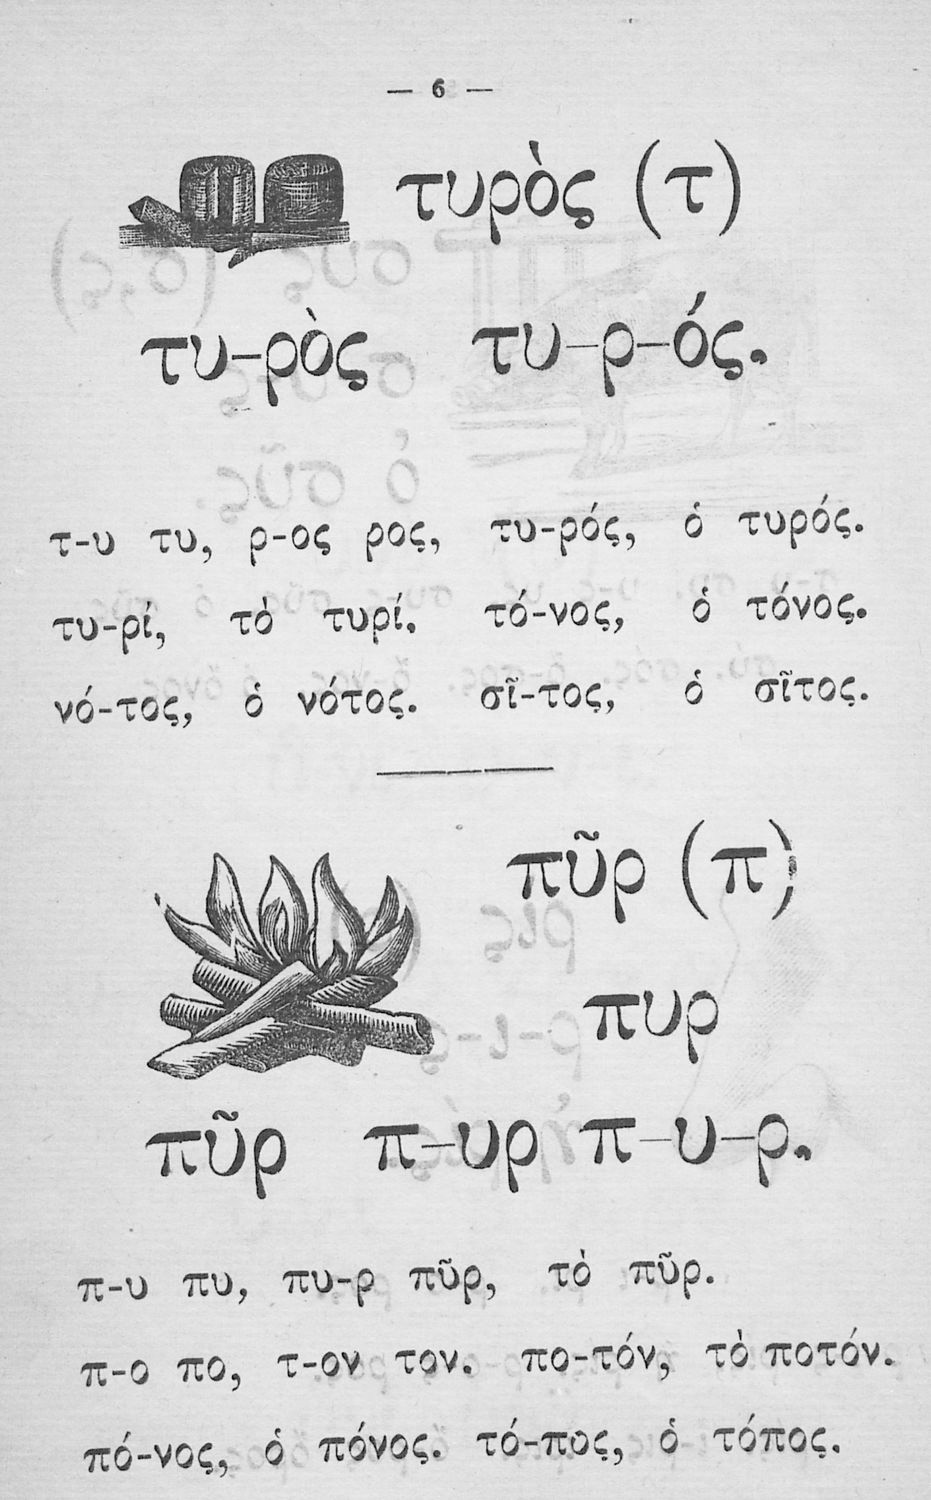 — 6 —
τυρὸς (τ)
τυ-ρὸς τυ-ρ-ός.
τ-υ τυ, ρ-ος ρος, τυ-ρός, ὁ τυρός.
τυ-ρί, τὸ τυρί. τό-νος, ὁ τόνος.
νό-τος, ὁ νότος. σῖ-τος, ὁ σῖτος.
πῦρ (π)
πυρ
πῦρ π-υρ π-υ-ρ.
π-υ πυ, πυ-ρ πῦρ, τὸ πῦρ.
π-ο πο, τ-ον τον. πο-τόν, τὸ ποτόν.
πό-νος, ὁ πόνος. τό-πος, ὁ τόπος.